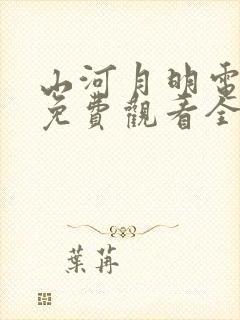 山河月明電
免費觀看全
葉苒